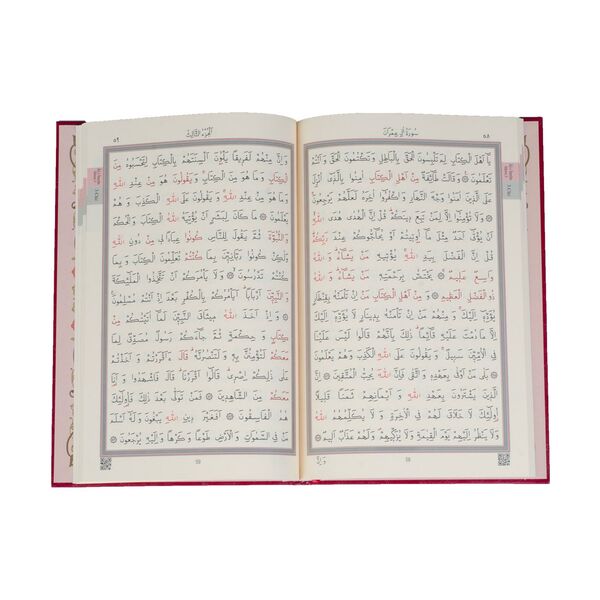 سُورَةُ اٰلِ عِمْرٰنَ
٥٨
يَٓا اَهْلَ الْكِتَابِ لِمَ تَلْبِسُونَ الْحَقَّ بِالْبَاطِلِ وَتَكْتُمُونَ الْحَقَّ وَاَنْتُمْ
تَعْلَمُونَ وَ قَالَتْ طَٓائِفَةٌ مِنْ اَهْلِ الْكِتَابِ اٰمِنُوا بِالَّذٖٓي اُنْزِلَ
عَلَى الَّذٖينَ اٰمَنُوا وَجْهَ النَّهَارِ وَ اكْفُرُٓوا اٰخِرَهُ لَعَلَّهُمْ يَرْجِعُونَ
وَلَا تُؤْمِنُٓوا اِلَّا لِمَنْ تَبِعَ دٖينَكُمْ قُلْ اِنَّ الْهُدٰى هُدَى اللّٰهِ
اَنْ يُؤْتٰٓى اَحَدٌ مِثْلَ مَٓا اُو۫تٖيتُمْ اَوْ يُحَٓاجُّوكُمْ عِنْدَ رَبِّكُمْ
قُلْ اِنَّ الْفَضْلَ بِيَدِ اللّٰهِ يُؤْتٖيهِ مَنْ يَشَٓاءُ وَ اللّٰهُ
وَاسِعٌ عَلٖيمٌ يَخْتَصُّ بِرَحْمَتِهٖ مَنْ يَشَٓاءُ وَ اللّٰهُ
ذُو الْفَضْلِ الْعَظٖيمِ وَ مِنْ اَهْلِ الْكِتَابِ مَنْ اِنْ تَأْمَنْهُ بِقِنْطَارٍ
يُؤَدِّهٖٓ اِلَيْكَ وَ مِنْهُمْ مَنْ اِنْ تَأْمَنْهُ بِدٖينَارٍ لَا يُؤَدِّهٖٓ اِلَيْكَ
اِلَّا مَا دُمْتَ عَلَيْهِ قَٓائِمًا ذٰلِكَ بِاَنَّهُمْ قَالُوا لَيْسَ عَلَيْنَا
فِي الْاُمِّيّٖنَ سَبٖيلٌ وَ يَقُولُونَ عَلَى اللّٰهِ الْكَذِبَ وَ هُمْ يَعْلَمُونَ
بَلٰى مَنْ اَوْفٰى بِعَهْدِهٖ وَ اتَّقٰى فَاِنَّ اللّٰهَ يُحِبُّ الْمُتَّقٖينَ
اِنَّ الَّذٖينَ يَشْتَرُونَ بِعَهْدِ اللّٰهِ وَ اَيْمَانِهِمْ ثَمَنًا قَلٖيلًا
اُو۬لٰٓئِكَ لَا خَلَاقَ لَهُمْ فِي الْاٰخِرَةِ وَ لَا يُكَلِّمُهُمُ اللّٰهُ
وَلَا يَنْظُرُ اِلَيْهِمْ يَوْمَ الْقِيٰمَةِ وَ لَا يُزَكّٖيهِمْ وَ لَهُمْ عَذَابٌ اَلٖيمٌ
وَاِنَّ
58
اَلْجُزْءُ الثَّالِثُ
٥٩
وَ اِنَّ مِنْهُمْ لَفَرٖيقًا يَلْوُ۫نَ اَلْسِنَتَهُمْ بِالْكِتَابِ لِتَحْسَبُوهُ مِنَ
الْكِتَابِ وَمَا هُوَ مِنَ الْكِتَابِ وَ يَقُولُونَ هُوَ مِنْ عِنْدِ اللّٰهِ
وَمَا هُوَ مِنْ عِنْدِ اللّٰهِ وَ يَقُولُونَ عَلَى اللّٰهِ الْكَذِبَ وَ هُمْ
يَعْلَمُونَ مَا كَانَ لِبَشَرٍ اَنْ يُؤْتِيَهُ اللّٰهُ الْكِتَابَ وَ الْحُكْمَ
وَ النُّبُوَّةَ ثُمَّ يَقُولَ لِلنَّاسِ كُونُوا عِبَادًا لٖي مِنْ دُونِ اللّٰهِ
وَلٰكِنْ كُونُوا رَبَّانِيّٖنَ بِمَا كُنْتُمْ تُعَلِّمُونَ الْكِتَابَ وَ بِمَا
كُنْتُمْ تَدْرُسُونَ وَلَا يَأْمُرَكُمْ اَنْ تَتَّخِذُوا الْمَلٰٓئِكَةَ
وَ النَّبِيّٖنَ اَرْبَابًا اَيَأْمُرُكُمْ بِالْكُفْرِ بَعْدَ اِذْ اَنْتُمْ مُسْلِمُونَ
وَ اِذْ اَخَذَ اللّٰهُ مٖيثَاقَ النَّبِيّٖنَ لَمَٓا اٰتَيْتُكُمْ مِنْ
كِتَابٍ وَ حِكْمَةٍ ثُمَّ جَٓاءَكُمْ رَسُولٌ مُصَدِّقٌ لِمَا
مَعَكُمْ لَتُؤْمِنُنَّ بِهٖ وَ لَتَنْصُرُنَّهُ قَالَ ءَاَقْرَرْتُمْ وَ اَخَذْتُمْ
عَلٰى ذٰلِكُمْ اِصْرٖي قَالُٓوا اَقْرَرْنَا قَالَ فَاشْهَدُوا وَ اَنَا۬
مَعَكُمْ مِنَ الشَّاهِدٖينَ فَمَنْ تَوَلّٰى بَعْدَ ذٰلِكَ فَاُو۬لٰٓئِكَ
هُمُ الْفَاسِقُونَ اَفَغَيْرَ دٖينِ اللّٰهِ يَبْغُونَ وَ لَهُٓ اَسْلَمَ
مَنْ فِي السَّمٰوَاتِ وَ الْاَرْضِ طَوْعًا وَ كَرْهًا وَ اِلَيْهِ يُرْجَعُونَ
59